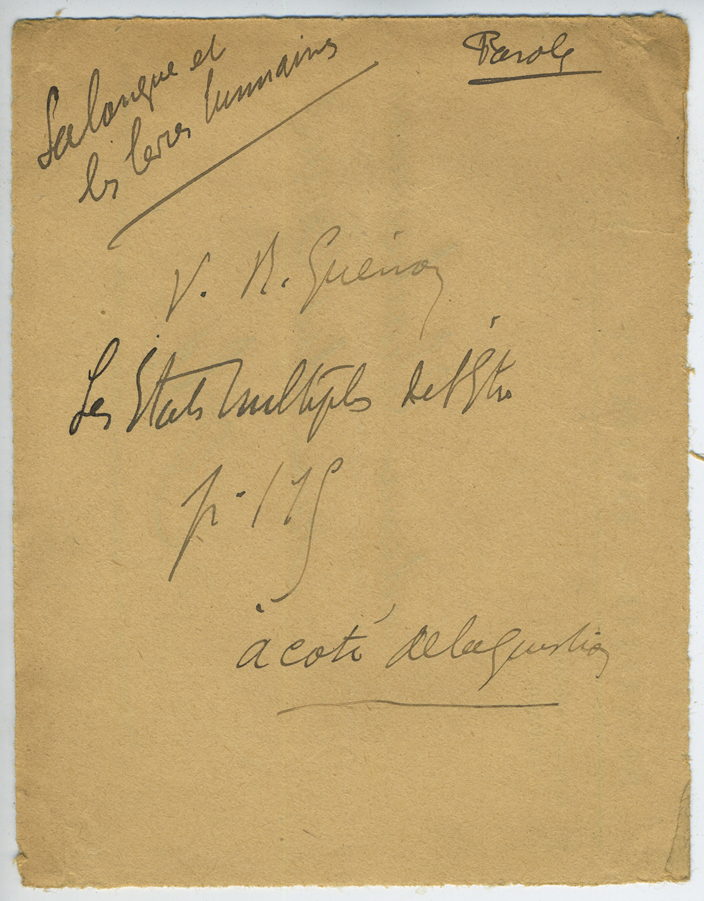 La langue et
les lèvres humaines
Parole
V. R. Guénon
Les Etats multiples de l'Être
p. 175
à coté de la question